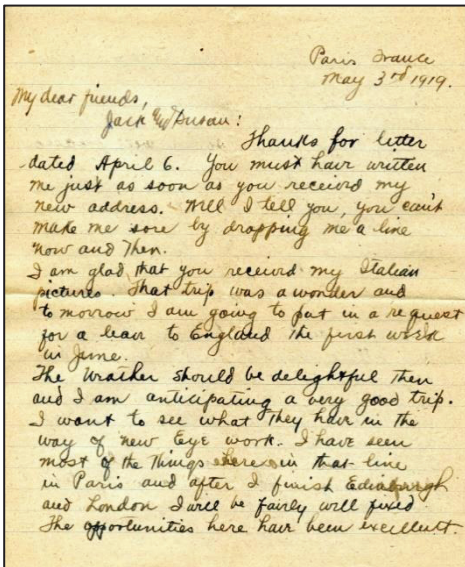 Paris France
May 3rd 1919.
My dear friends,
Jack and Susan:
Thanks for letter
dated April 6. You must have written
me just as soon as you received my
new address. Well I tell you, you can't
make me sore by dropping me a line
now and then.
I am glad that you received my Italian
pictures. That trip was a wonder and
to morrow I am going to put in a request
for a leave to England the first week
in June.
The weather should be delightful then
and I am anticipating a very good trip.
I want to see what they have in the
way of new Eye work. I have seen
most of the things here in that line
in Paris and after I finish Edinburgh
and London I will be fairly well fixed
The opportunities here have been excellent.